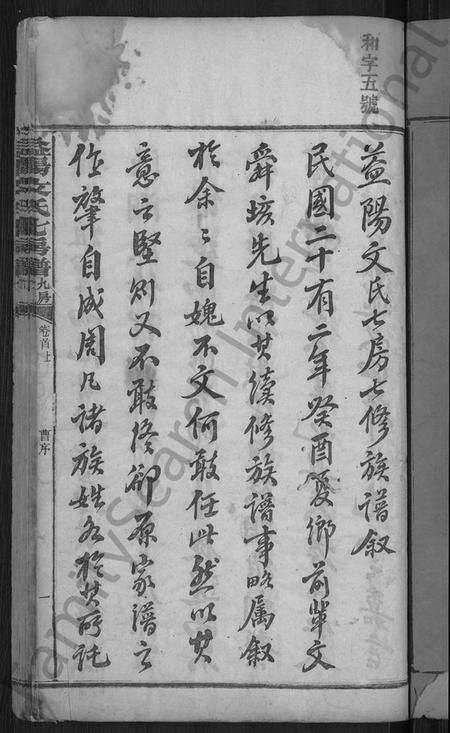 和字五號
益陽文氏七房七修族譜叙
民國二十有二年癸酉夏鄉前輩文
舜垓先生以其續修族譜事略属叙
於余〻自媿不文何敢任此然以其
意之堅則又不敢終卻原家譜之
作肇自成周凡諸族姓各於其所託
九房
卷首上
曹序
一
FamilySearch International